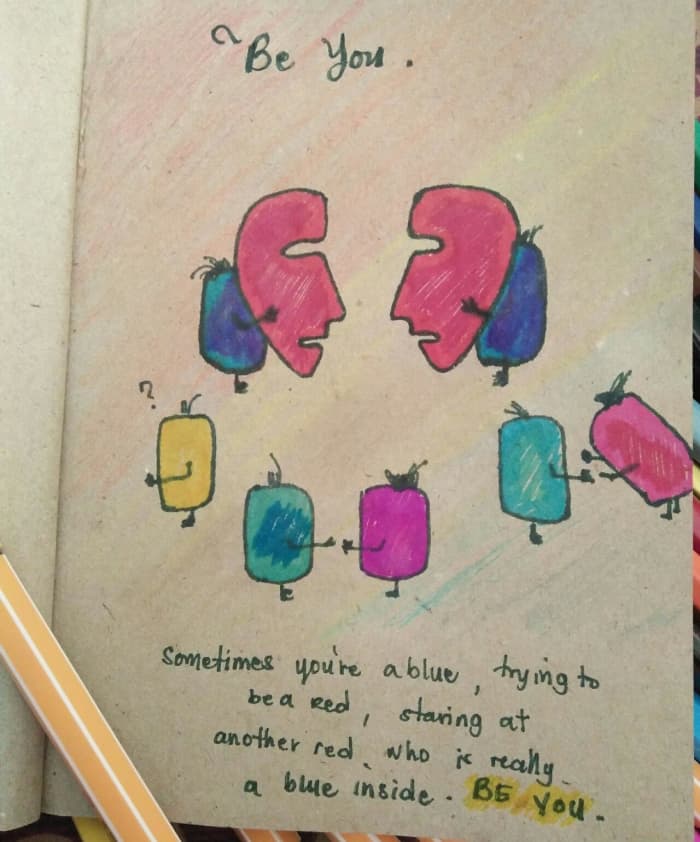 Be You.
?
Sometimes you're a blue, trying to
be a red, staring at
another red, who is really
a blue inside. BE YOU.